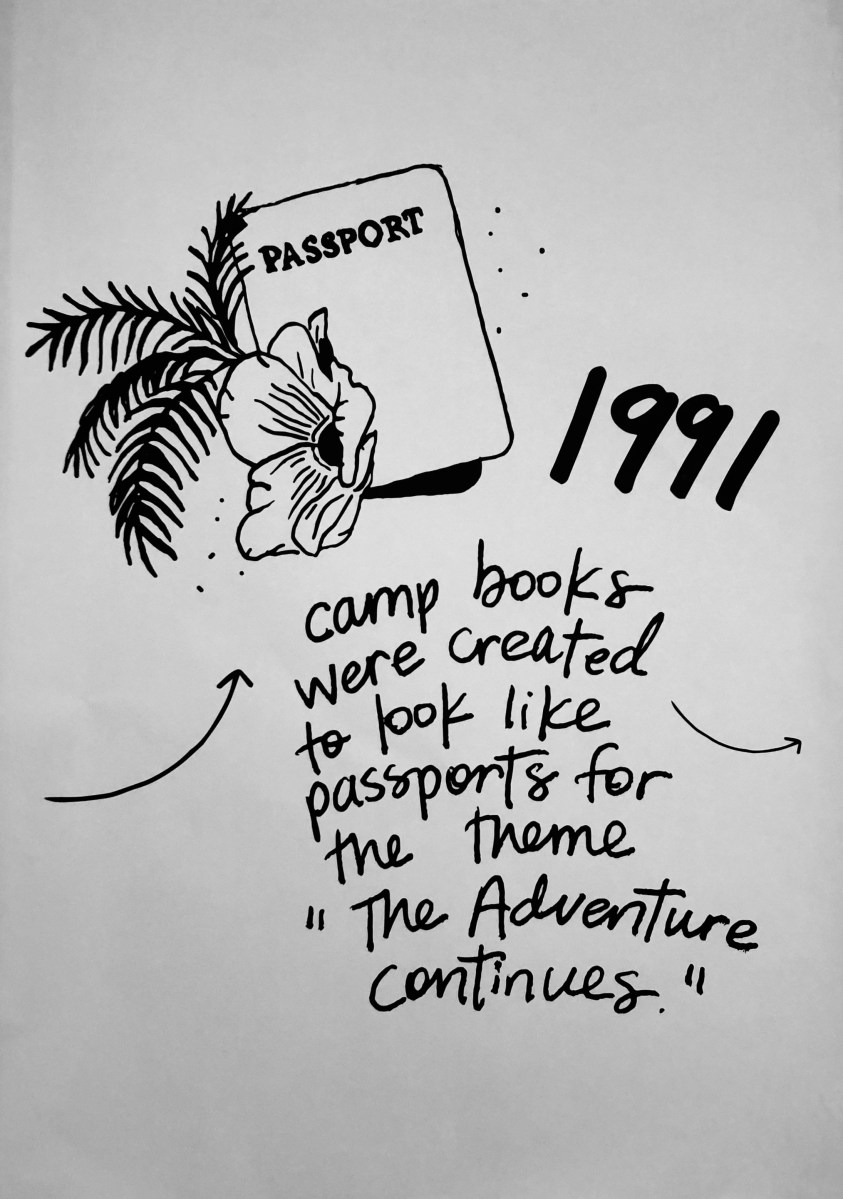 PASSPORT
1991
camp books
were created
to look like
passports for
the theme
"The Adventure
continues."